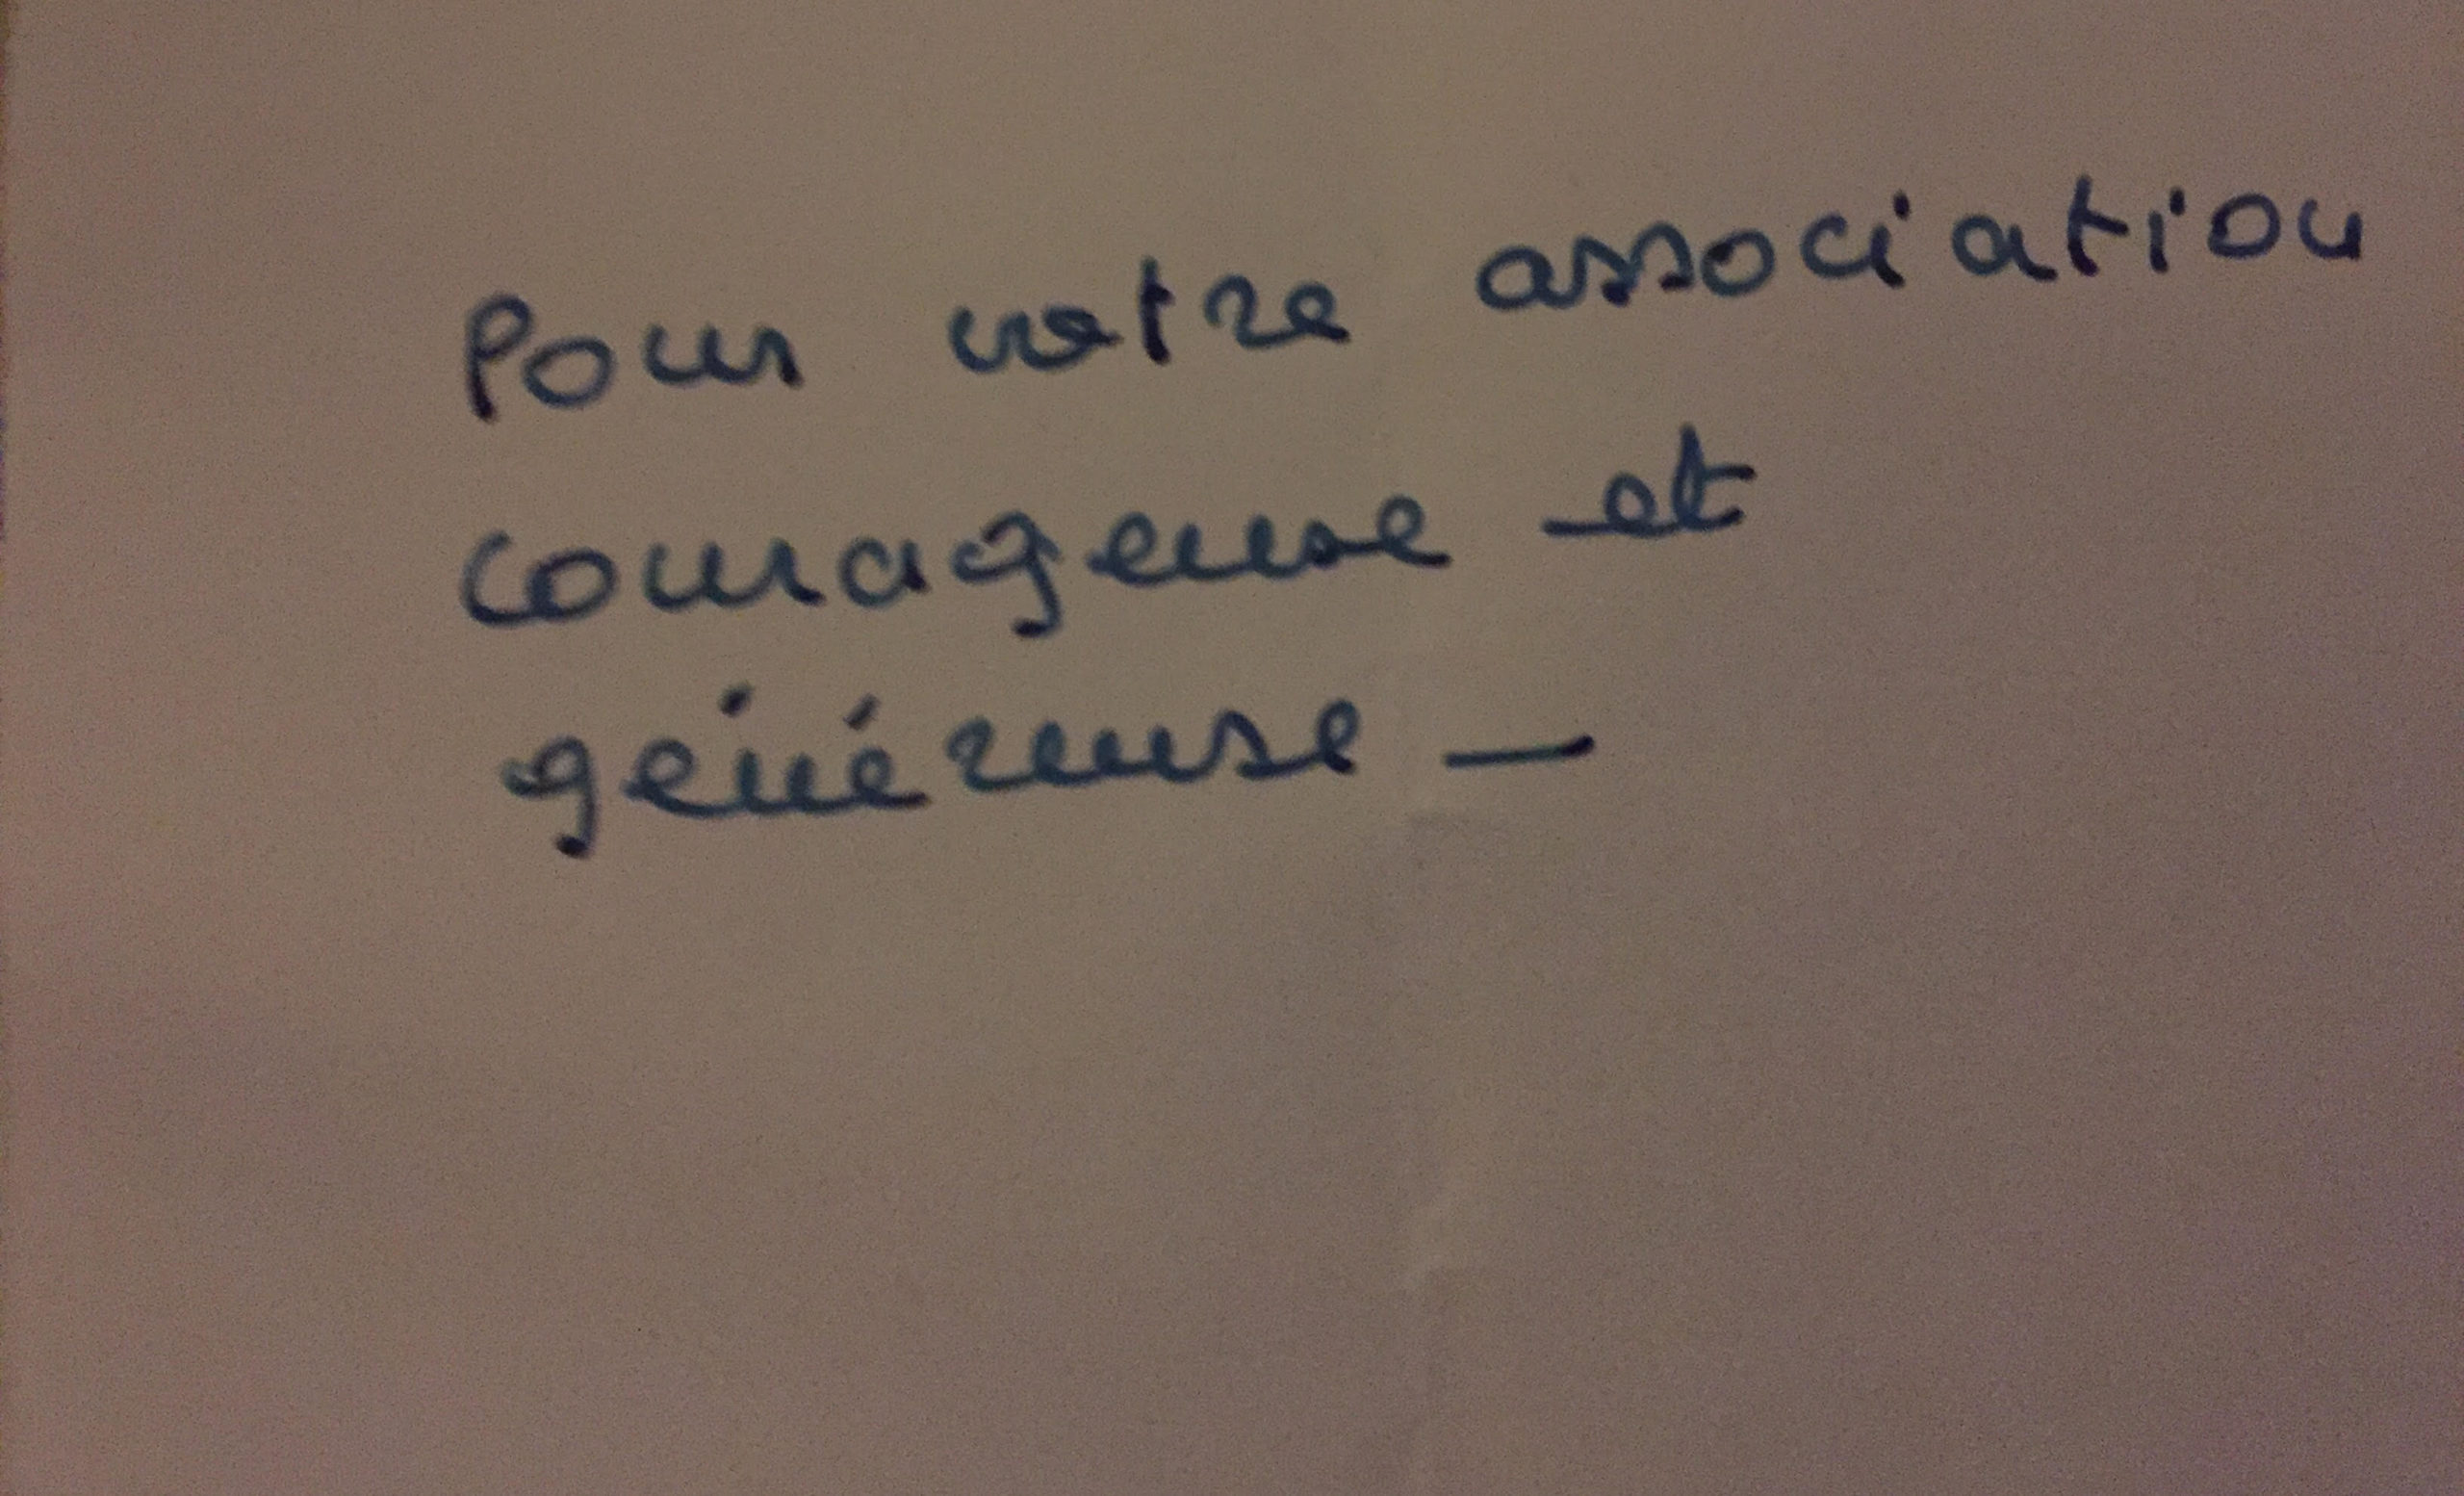 Pour votre association
courageuse et
généreuse —